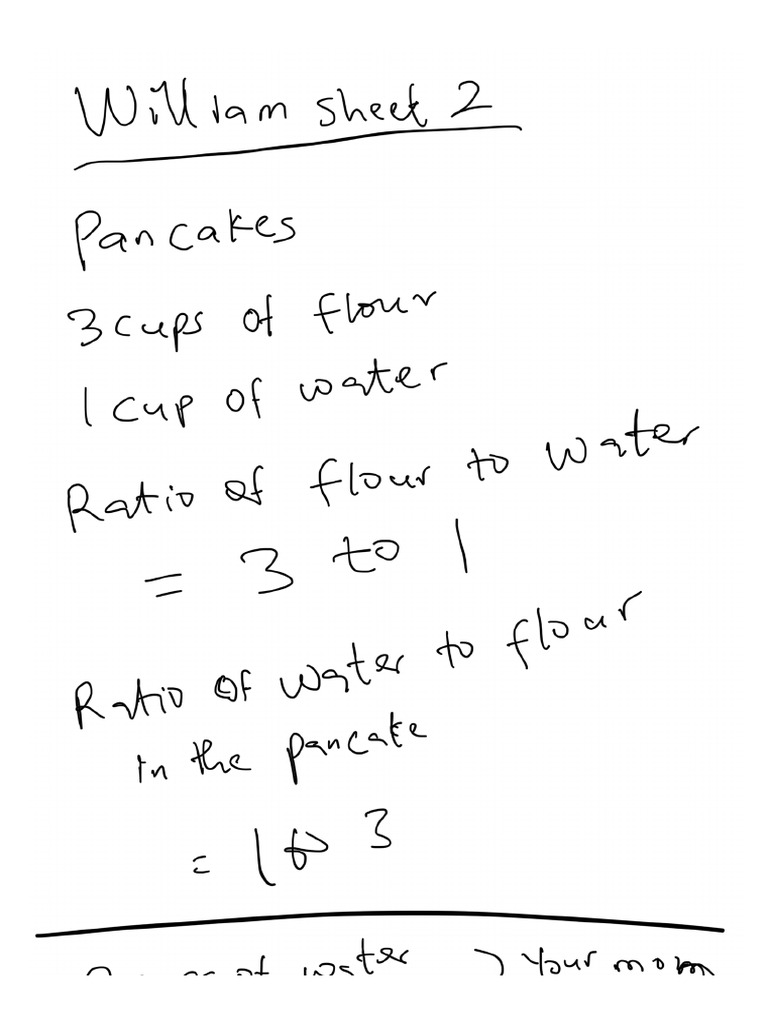 William sheet 2
Pancakes
3 cups of flour
1 cup of water
Ratio of flour to water
= 3 to 1
Ratio of water to flour
in the pancake
= 1 to 3
of water } Your mom